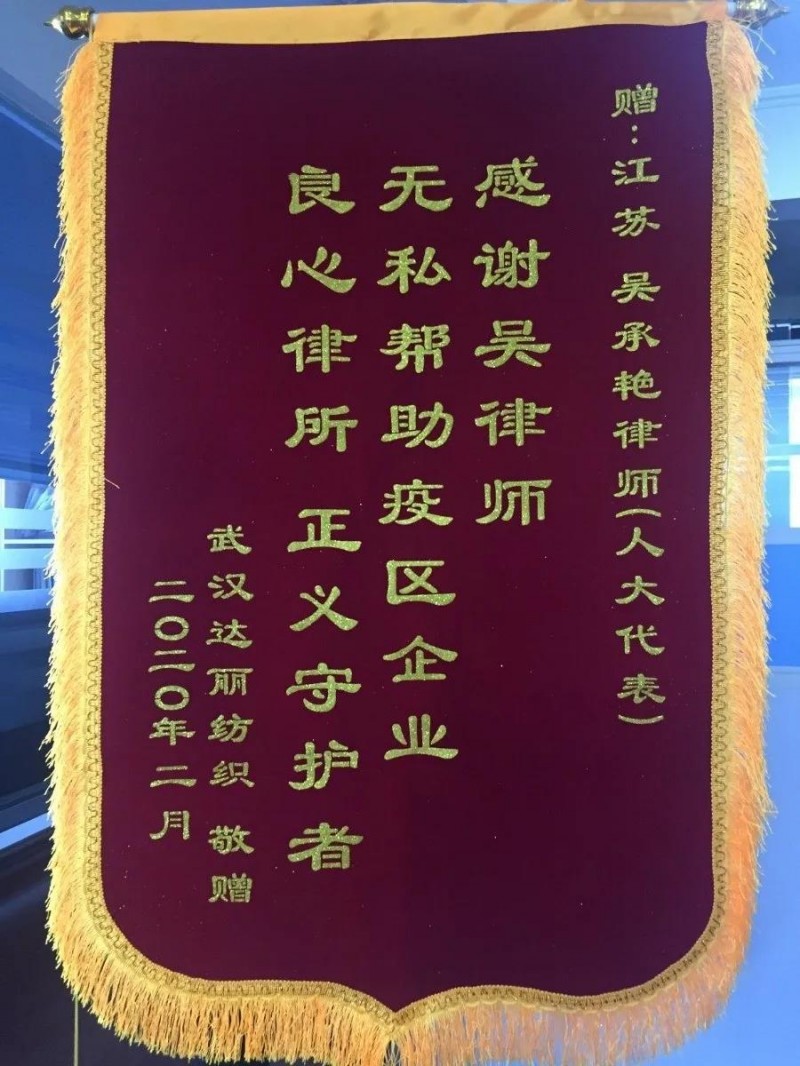 赠：江苏 吴承艳律师(人大代表)
感谢吴律师
无私帮助疫区企业
良心律所 正义守护者
武汉达丽纺织 敬赠
二〇二〇年二月